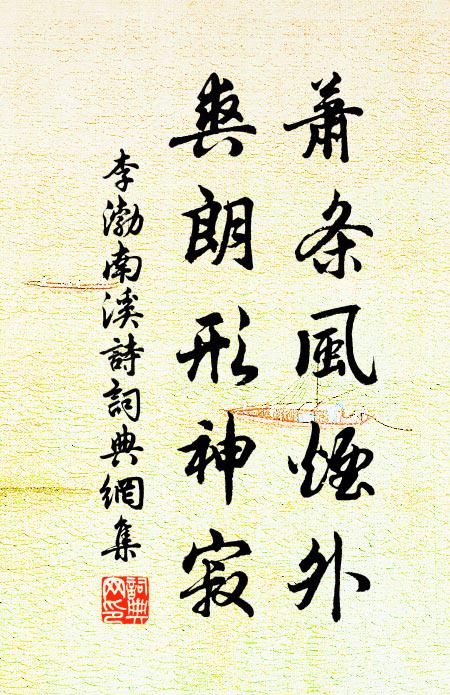 萧条風煙外
爽朗形神寂
李渤南溪詩詞典網集
詞典网印